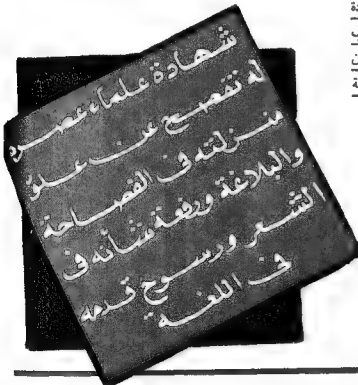 شهادة علماء عصره
له تفصح عن علو
منزلته فى الفصاحة
والبلاغة ورفعة شأنه فى
الشعر ورسوخ قدمه
فى اللغة